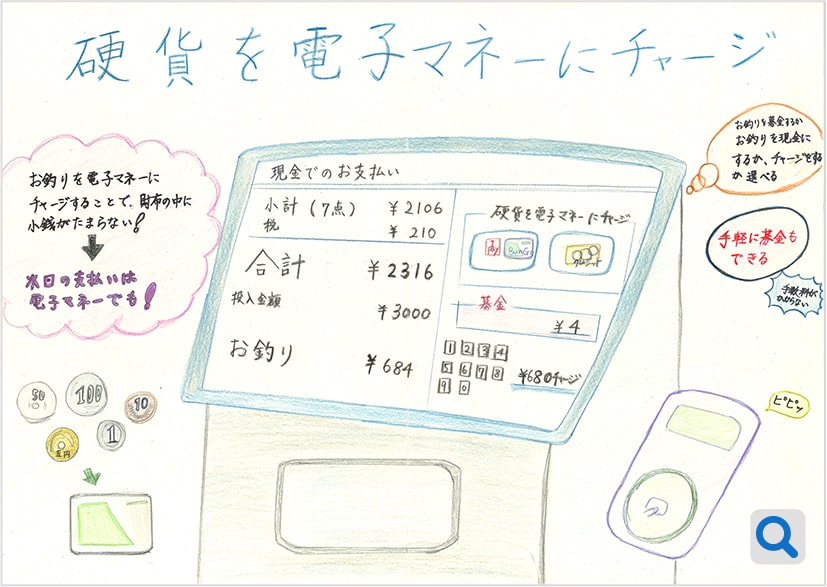 硬貨を電子マネーにチャージ
お釣りを電子マネーに
チャージすることで、財布の中に
小銭がたまらない!
次回の支払いは
電子マネーでも!
現金でのお支払い
小計(7点) ¥2106
税 ¥210
合計 ¥2316
投入金額 ¥3000
お釣り ¥684
硬貨を電子マネーにチャージ
Pay
クレジット
募金
¥4
1 2 3 4
5 6 7 8
9 0
¥680チャージ
お釣りを募金するか
お釣りを現金に
するか、チャージをする
か選べる
手軽に募金も
できる
手数料が
かからない
ピピッ
50
100
10
五円
1